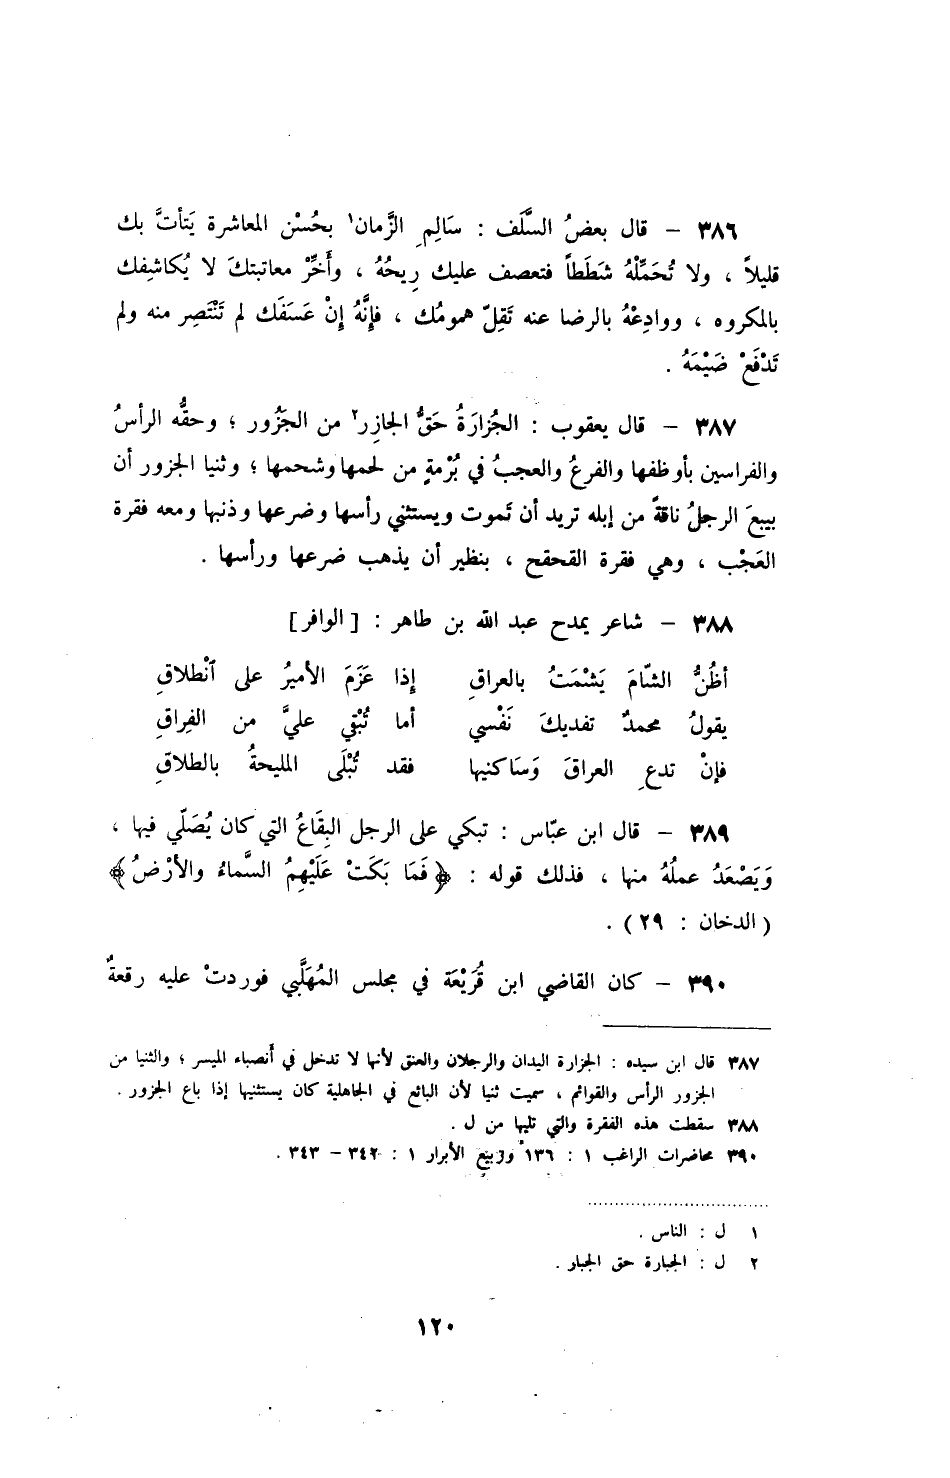 ٣٨٦ – قال بعضُ السَّلَف : سَالِمِ الزَّمان١ بحُسْن المعاشرة يَتأتَّ بك
قليلاً ، ولا تُحَمِّلْهُ شَطَطاً فتعصف عليك رِيحُهُ ، وأَخِّرْ معاتبتكَ لا يُكاشِفك
بالمكروه ، ووادِعْهُ بالرضا عنه تَقِلّ همومُك ، فإنَّهُ إنْ عَسَفَك لم تَنْتَصِر منه ولم
تَدْفَعْ ضَيْمَهُ .
٣٨٧ – قال يعقوب : الجُزارَةُ حَقُّ الجازِر٢ من الجَزُور ؛ وحقُّه الرأسُ
والفراسين بأوظفها والفرعُ والعجبُ في بُرْمةٍ من لحمها وشحمها ؛ وثنيا الجزور أن
يبيعَ الرجلُ ناقةً من إبله تريد أن تَموت ويستثني رأسها وضرعها وذنبها ومعه فقرة
العَجْب ، وهي فقرة القحقح ، بنظير أن يذهب ضرعها ورأسها .
٣٨٨ – شاعر يمدح عبد الله بن طاهر : [ الوافر]
أظُنُّ الشّامَ يَشْمَتُ بالعراقِ إذا عَزَمَ الأميرُ على ٱنْطلاقِ
يقولُ محمدٌ تفديكَ نَفْسي أما تُبْقي عليَّ من الفِراقِ
فإنْ تدعِ العراقَ وَسَاكنيها فقد تُبْلَى المليحةُ بالطلاقِ
٣٨٩ – قال ابن عبّاس : تبكي على الرجل البِقَاعُ التي كان يُصَلّي فيها ،
وَيَصْعَدُ عملُهُ منها ، فذلك قوله : ﴿فَمَا بَكَتْ عَلَيْهِمُ السَّماءُ والأرْضُ﴾
(الدخان : ٢٩) .
٣٩٠ – كان القاضي ابن قُرَيْعَة في مجلس المُهَلَّبي فوردتْ عليه رقعةٌ
٣٨٧ قال ابن سيده : الجزارة اليدان والرجلان والعنق لأنها لا تدخل في أَنصباء الميسر ؛ والثنيا من
الجزور الرأس والقوائم ، سميت ثنيا لأن البائع في الجاهلية كان يستثنيها إذا باع الجزور .
٣٨٨ سقطت هذه الفقرة والتي تليها من ل .
٣٩٠ محاضرات الراغب ١ : ١٣٦ وربيع الأبرار ١ : ٣٤٢ – ٣٤٣ .
١ ل : الناس .
٢ ل : الجبارة حق الجبار .
١٢٠